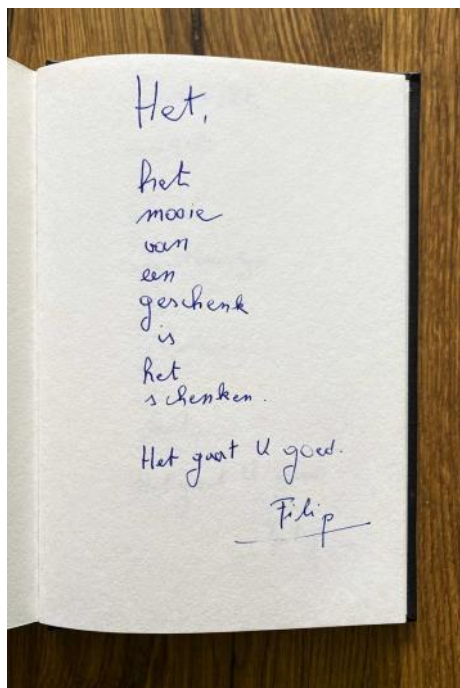 Het,
het
mooie
van
een
geschenk
is
het
schenken.
Het gaat U goed.
Filip